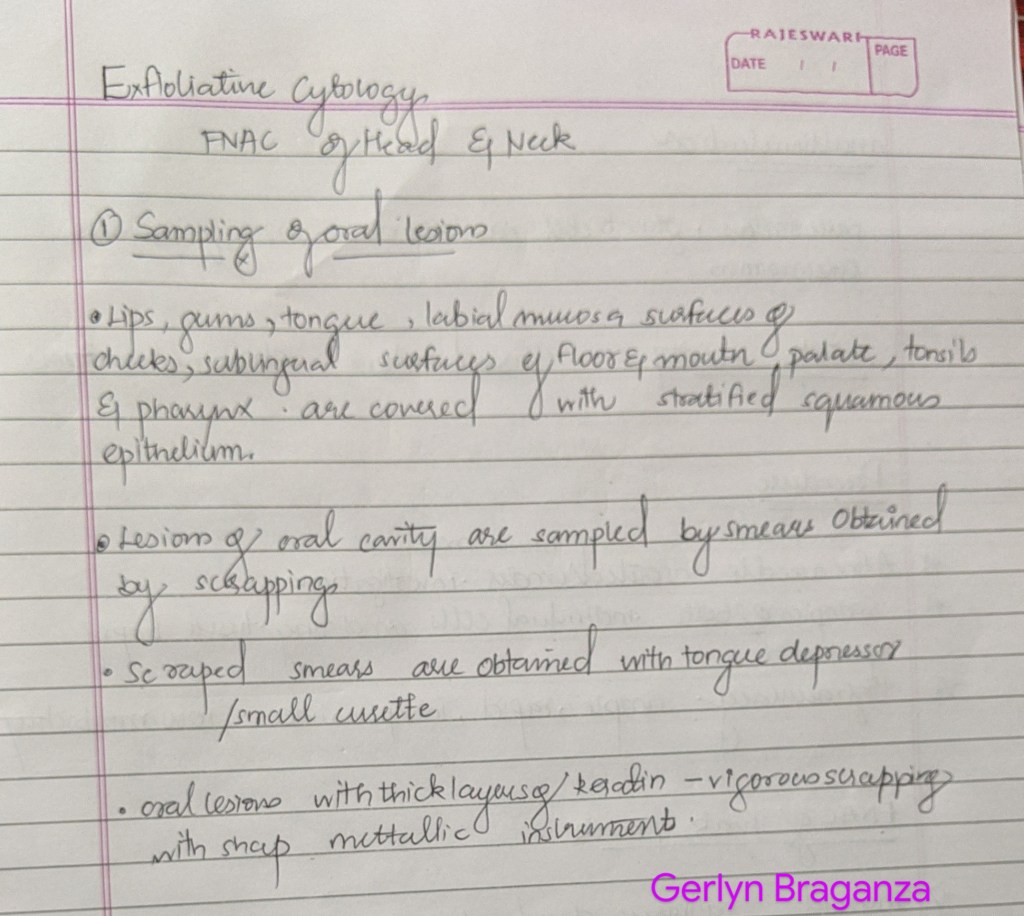 RAJESWARI
DATE / / PAGE
Exfoliative Cytology
FNAC of Head & Neck
① Sampling of oral lesions
• Lips, gums, tongue, labial mucosa surfaces of
cheeks, sublingual surfaces of floor & mouth, palate, tonsils
& pharynx. are covered with stratified squamous
epithelium.
• Lesions of oral cavity are sampled by smears obtained
by scrapping
• Scraped smears are obtained with tongue depressor
/small curette
• oral lesions with thick layers of keratin - vigorous scrapping
with shap mettallic instrument.
Gerlyn Braganza